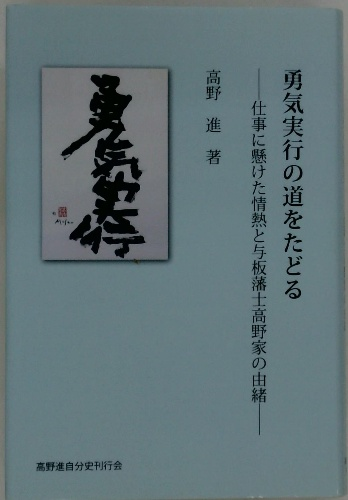 勇気実行の道をたどる
――仕事に懸けた情熱と与板藩士高野家の由緒――
高野 進 著
勇気実行
高野進自分史刊行会